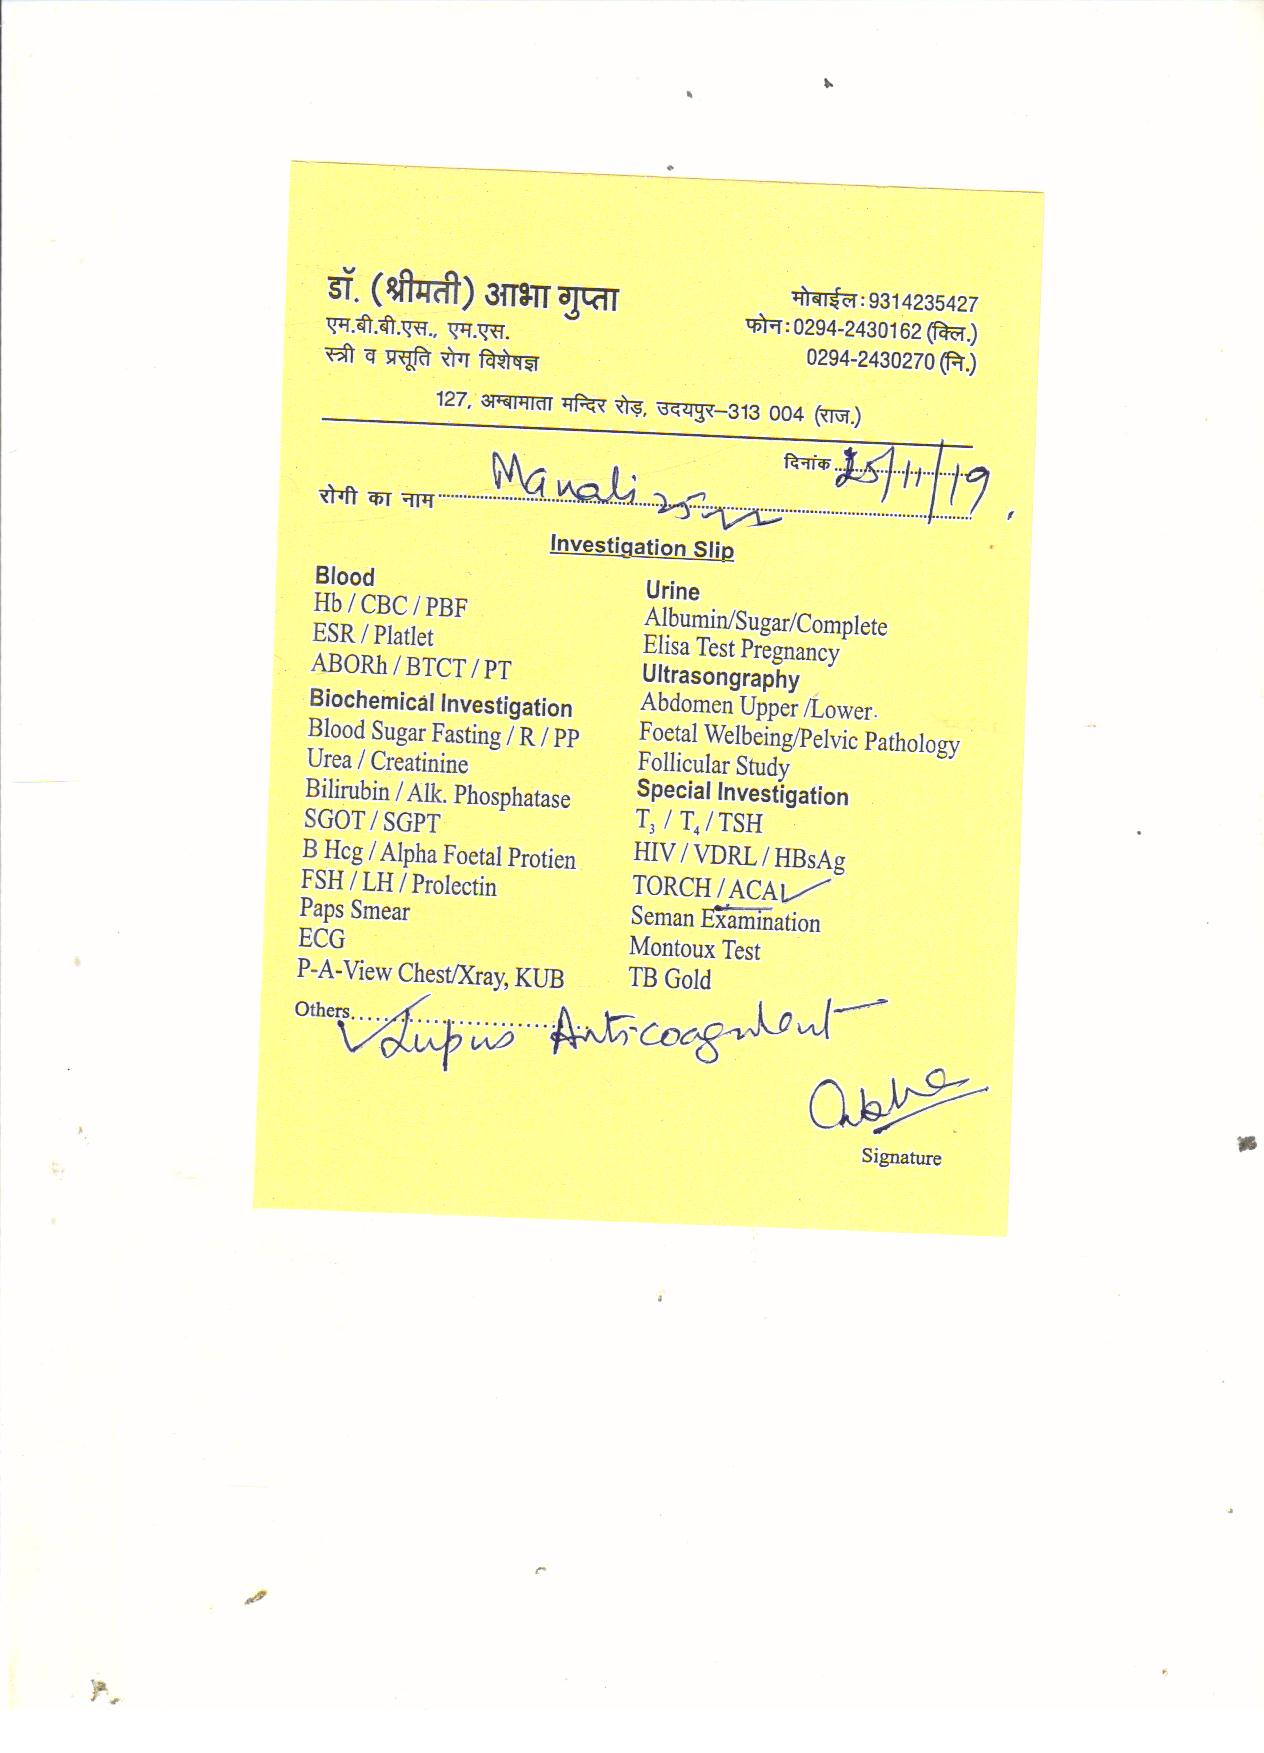 डॉ. (श्रीमती) आभा गुप्ता
एम.बी.बी.एस., एम.एस.
स्त्री व प्रसूति रोग विशेषज्ञ
मोबाईल : 9314235427
फोन : 0294-2430162 (क्लि.)
0294-2430270 (नि.)
127, अम्बामाता मन्दिर रोड़, उदयपुर–313 004 (राज.)
दिनांक 25/11/19
रोगी का नाम Manali
Investigation Slip
Blood
Hb / CBC / PBF
ESR / Platlet
ABORh / BTCT / PT
Biochemical Investigation
Blood Sugar Fasting / R / PP
Urea / Creatinine
Bilirubin / Alk. Phosphatase
SGOT / SGPT
B Hcg / Alpha Foetal Protien
FSH / LH / Prolectin
Paps Smear
ECG
P-A-View Chest/Xray, KUB
Urine
Albumin/Sugar/Complete
Elisa Test Pregnancy
Ultrasongraphy
Abdomen Upper /Lower.
Foetal Welbeing/Pelvic Pathology
Follicular Study
Special Investigation
T₃ / T₄ / TSH
HIV / VDRL / HBsAg
TORCH / ACAL
Seman Examination
Montoux Test
TB Gold
Others..............................
Lupus Anticoagulent
Abha
Signature